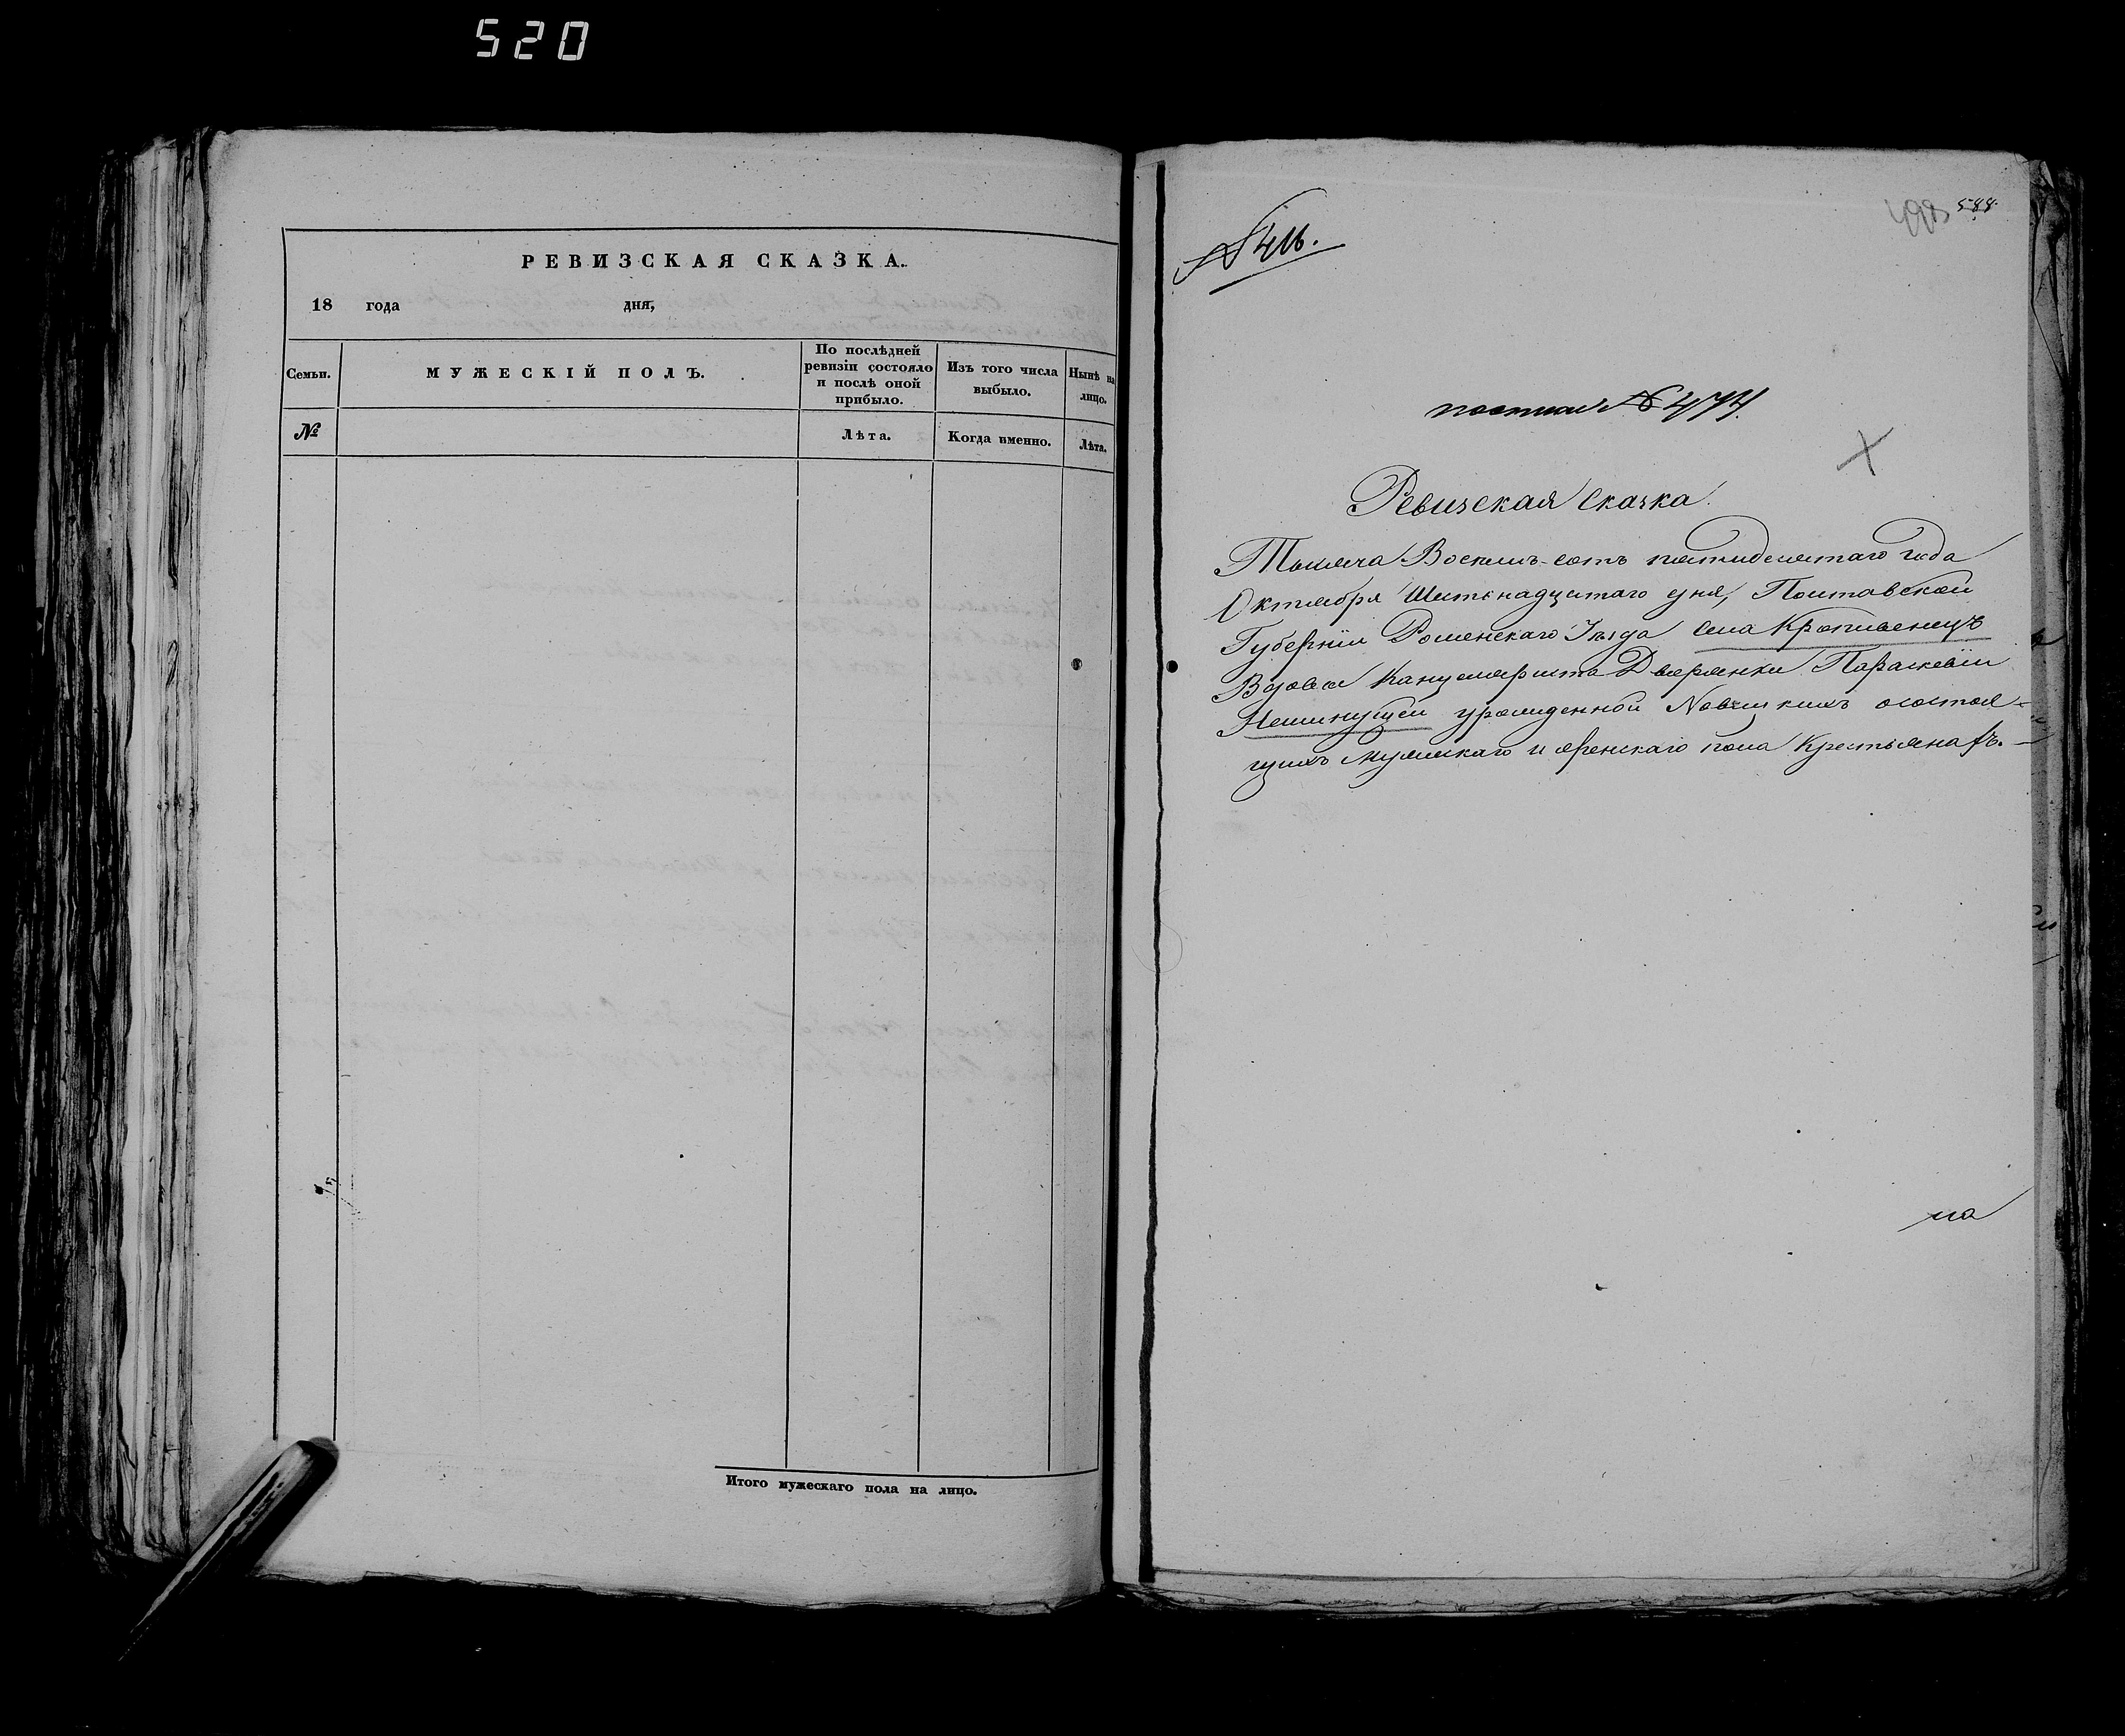 520
РЕВИЗСКАЯ СКАЗКА.
18 года дня,
Семьи.
МУЖЕСКІЙ ПОЛЪ.
По послѣдней ревизіи состояло и послѣ оной прибыло.
Изъ того числа выбыло.
Нынѣ на лицо.
№
Лѣта.
Когда именно.
Лѣта.
Итого мужескаго пола на лицо.
588
№ 416.
Ревизская Сказка
Тысяча Восемь-сотъ пятидесятаго года
Октября Шестьнадцатаго дня, Полтавской
Губерніи Роменскаго Уѣзда села Кропивенецъ
Вдовы Канцеляриста Дворянки Параскевіи
урожденной состоя-
щихъ мужескаго и женскаго пола Крестьянахъ.